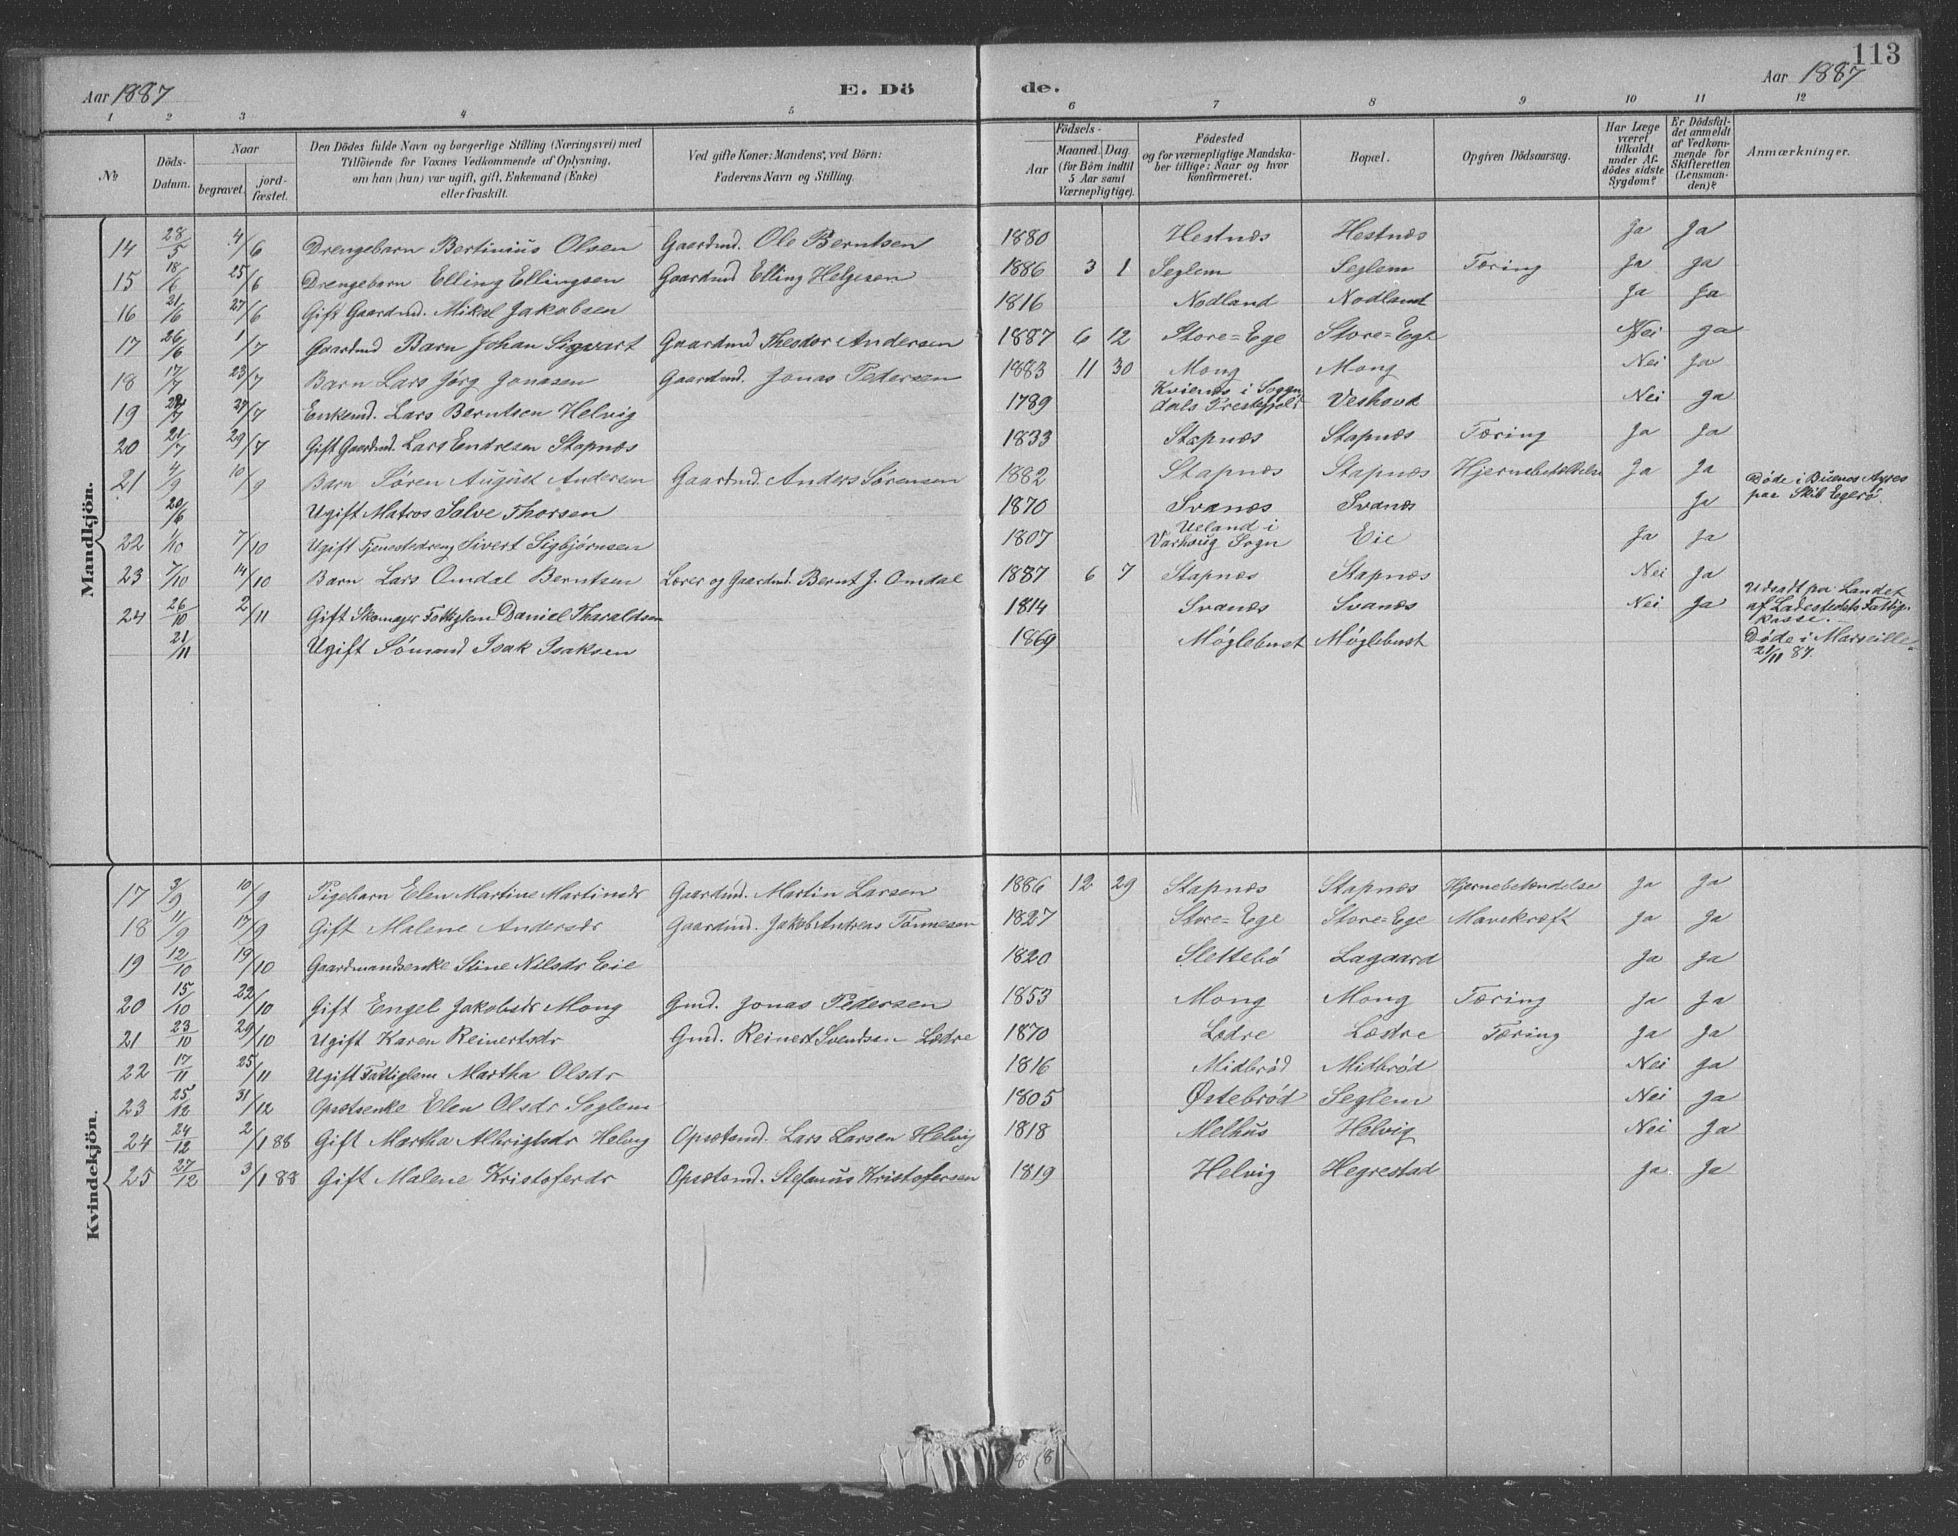 113
Aar 1887 E. Dö de. Aar 1887
1 2 3 4 5 6 7 8 9 10 11 12
No
Döds-Datum.
Naar
begravet.
jord-fæstet.
Den Dödes fulde Navn og borgerlige Stilling (Næringsvei) med
Tilföiende for Voxnes Vedkommende af Oplysning,
om han (hun) var ugift, gift, Enkemand (Enke)
eller fraskilt.
Ved gifte Koner: Mandens, ved Börn:
Faderens Navn og Stilling.
Födsels-
Aar
Maaned. Dag.
(for Börn indtil
5 Aar samt
Værnepligtige).
Födested
og for værnepligtige Mandska-
ber tillige: Naar og hvor
konfirmeret.
Bopæl.
Opgiven Dödsaarsag.
Har Læge
været
tilkaldt
under Af-
dödes sidste
Sygdom?
Er Dödsfal-
det anmeldt
af Vedkom-
mende for
Skifteretten
(Lensman-
den)?
Anmærkninger.
Mandkjön.
14 28/5 4/6 Drengebarn Bertinius Olsen Gaardmd. Ole Berntsen 1880 Hestnæs Hestnæs Ja Ja
15 18/6 25/6 Drengebarn Elling Ellingsen Gaardmd Elling Helgesen 1886 3 1 Seglem Seglem Tæring Ja Ja
16 21/6 27/6 Gift Gaardmd. Mikal Jakobsen 1816 Nodland Nodland Ja Ja
17 26/6 1/7 Gaardmd Barn Johan Sigvart Gaardmd Theodor Andersen 1887 6 12 Store=Ege Store=Ege Nei Ja
18 17/7 23/7 Barn Lars Jørg Jonasen Gaardmd. Jonas Pedersen 1883 11 30 Mong Mong Nei Ja
19 /7 27/7 Enkemd. Lars Berntsen Helvig 1789 i Soggn-
dals Prestegjeld Nei Ja
20 21/7 29/7 Gift Gaardmd. Lars Endresen Stapnæs 1833 Stapnæs Stapnæs Tæring Ja Ja
21 4/9 10/9 Barn Søren August Andersen Gaardmd. Anders Sørensen 1882 Stapnæs Stapnæs Hjernebetændelse Ja Ja
20/6 Ugift Matros Salve Thorsen 1870 Svanæs Svanæs Ja Døde i Buenos Ayres
paa Skib Egerö.
22 1/10 7/10 Ugift Tjenestedreng Sivert Sigbjørnsen 1807 Ueland i
Varhoug Sogn Eie Ja Ja
23 7/10 14/10 Barn Lars Omdal Berntsen Lærer og Gaardmd. Bernt J. Omdal 1887 6 7 Stapnæs Stapnæs Nei Ja
24 26/10 2/11 Gift Skomager Fattiglem Daniel Tharaldsen 1814 Svanæs Svanæs Nei Ja Udsadt paa Landet
af Ladestedets Fattig-
kasse.
21/11 Ugift Sømand Isak Isaksen 1869 Møglebust Møglebust Døde i Marseille
21/11 87.
Kvindekjön.
17 3/9 10/9 Pigebarn Elen Martine Martinsdr Gaardmd. Martin Larsen 1886 12 29 Stapnæs Stapnæs Hjernebetændelse Ja Ja
18 11/9 17/9 Gift Malene Andersdr Gaardmd. Jakob Andreas Tønnesen 1827 Store=Ege Store=Ege Mavekræft Ja Ja
19 12/10 19/10 Gaardmandsenke Stine Nilsdr Eie 1820 Slettebø Lagaard Ja Ja
20 15/10 22/10 Gift Engel Jakobsdr Mong Gmd. Jonas Pedersen 1853 Mong Mong Tæring Ja Ja
21 23/10 29/10 Ugift Karen Reinertsdr Gmd. Reinert Svendsen Lædre 1870 Lædre Tæring Ja Ja
22 17/11 25/11 Ugift Fattiglem Martha Olsdr 1816 Midbrød Midbrød Nei Ja
23 25/12 31/12 Opsætsenke Elen Olsdr Seglem 1805 Østebrød Seglem Nei Ja
24 24/12 2/1 88 Gift Martha Albrigtsdr Helvig Opsætsmd. Lars Larsen Helvig 1818 Melhus Helvig Nei Ja
25 27/12 3/1 88 Gift Malene Kristofersdr Opsætsmd. Stefanus Kristofersen 1819 Helvig Hegrestad Ja Ja